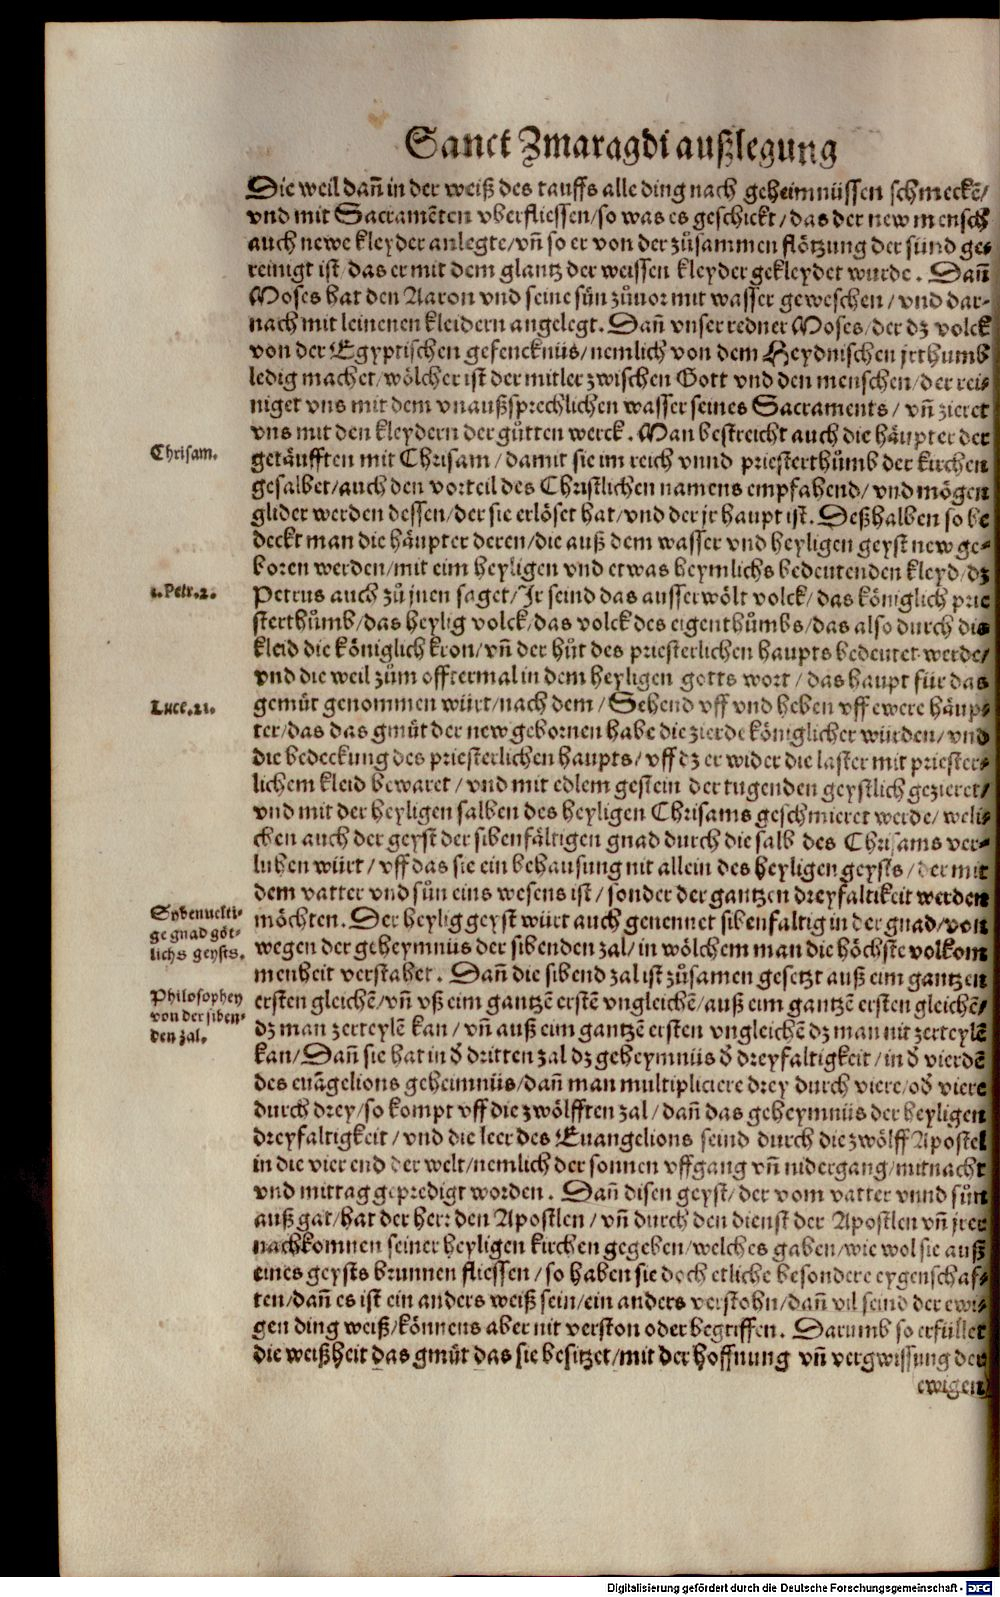 Sanct Zmaragdi außlegung
Die weil dañ in der weiß des tauffs alle ding nach geheimnüssen schmeckẽ/
vnd mit Sacramẽten vberfliessen/so was es geschickt/das der new mensch
auch newe kleyder anlegte/vñ so er von der zůsammen flötzung der sünd ge⸗
reinigt ist/das er mit dem glantz der weissen kleyder gekleydet wurde. Dañ
Moses hat den Aaron vnd seine sün zůuor mit wasser geweschen/vnd dar⸗
nach mit leinenen kleidern angelegt. Dañ vnser redner Moses/der dz volck
von der Egyptischen gefencknüs/nemlich von dem Heydnischen jrthumb
ledig machet/wölcher ist der mitler zwischen Gott vnd den menschen/der rei⸗
niget vns mit dem vnaußsprechlichen wasser seines Sacraments/vñ zieret
vns mit den kleydern der gůtten werck. Man bestreicht auch die häupter der
Chrisam.
getäufften mit Chrisam/damit sie im reich vnnd priesterthůmb der kirchen
gesalbet/auch den vorteil des Christlichen namens empfahend/vnd mögen
glider werden dessen/der sie erlöset hat/vnd der jr haupt ist. Deßhalben so be
deckt man die häupter deren/die auß dem wasser vnd heyligen geyst new ge⸗
boren werden/mit eim heyligen vnd etwas heymlichs bedeutenden kleyd/dz
1. Petr. 2.
Petrus auch zů jnen saget/Jr seind das ausserwölt volck/das königlich prie
sterthůmb/das heylig volck/das volck des eigenthůmbs/das also durch die
kleid die königlich kron/vñ der hůt des priesterlichen haupts bedeutet werde/
vnd die weil zům offtermal in dem heyligen gotts wort/das haupt für das
Luce. 21.
gemüt genommen würt/nach dem/Sehend vff vnd heben vff ewere häup⸗
ter/das das gmüt der new gebornen habe die zierde königlicher würden/vnd
die bedeckung des priesterlichen haupts/vff dz er wider die laster mit priester⸗
lichem kleid bewaret/vnd mit edlem gestein der tugenden geystlich gezieret/
vnd mit der heyligen salben des heyligen Chrisams geschmieret werde/weli⸗
chen auch der geyst der sibenfältigen gnad durch die salb des Chrisams ver⸗
luhen würt/vff das sie ein behausung nit allein des heyligen geysts/der mit
dem vatter vnd sün eins wesens ist/sonder der gantzen dreyfaltikeit werden
Sybenuelti⸗
ge gnad göt⸗
lichs geysts.
möchten. Der heylig geyst würt auch genennet sibenfaltig in der gnad/von
wegen der geheymnüs der sibenden zal/in wölchem man die höchste volkom
menheit verstahet. Dañ die sibend zal ist zůsamen gesetzt auß eim gantzen
Philosophey
von der siben⸗
den zal.
ersten gleichẽ/vñ vß eim gantzẽ erstẽ vngleichẽ/auß eim gantzẽ ersten gleichẽ/
dz man zerteylẽ kan/vñ auß eim gantzẽ ersten vngleichẽ dz man nit zerteylẽ
kan/Dañ sie hat in d̃ dritten zal dz geheymnüs d̃ dreyfaltigkeit/in d̃ vierdẽ
des euãgelions geheimnüs/dañ man multipliciere drey durch viere/od̃ viere
durch drey/so kompt vff die zwölfften zal/dañ das geheymnüs der heyligen
dreyfaltigkeit/vnd die leer des Euangelions seind durch die zwölff Apostel
in die vier end der welt/nemlich der sonnen vffgang vñ nidergang/mitnacht
vnd mittag gepredigt worden. Dañ disen geyst/der vom vatter vnnd sün
auß gat/hat der herr den Apostlen/vñ durch den dienst der Apostlen vñ jrer
nachkomnen seiner heyligen kirchen gegeben/welches gaben/wie wol sie auß
eines geysts brunnen fliessen/so haben sie doch etliche besondere eygenschaf⸗
ten/dañ es ist ein anders weiß sein/ein anders verstohn/dañ vil seind der ewi⸗
gen ding weiß/könnens aber nit verston oder begriffen. Darumb so erfüllet
die weißheit das gmüt das sie besitzet/mit der hoffnung vñ vergwissung der
ewigen
Digitalisierung gefördert durch die Deutsche Forschungsgemeinschaft - DFG